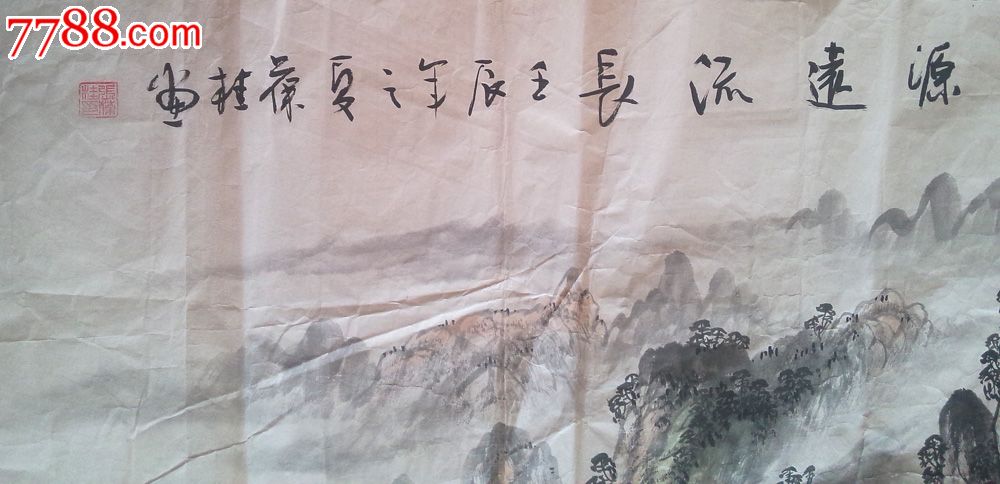 7788.com
源遠流長壬辰年之夏葆桂画